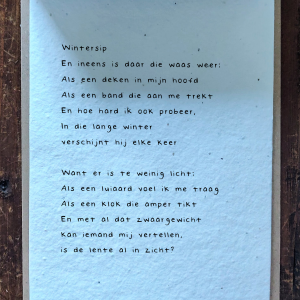 Wintersip
En ineens is daar die waas weer:
Als een deken in mijn hoofd
Als een band die aan me trekt
En hoe hard ik ook probeer,
In die lange winter
verschijnt hij elke keer
Want er is te weinig licht:
Als een luiaard voel ik me traag
Als een klok die amper tikt
En met al dat zwaargewicht
kan iemand mij vertellen,
is de lente al in zicht?